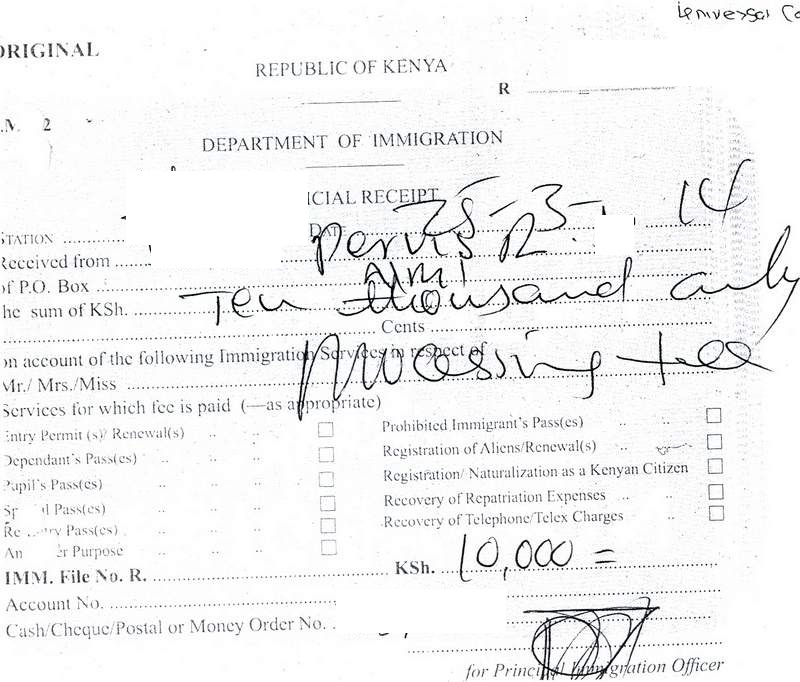 ORIGINAL
REPUBLIC OF KENYA
R
.M. 2
DEPARTMENT OF IMMIGRATION
ICIAL RECEIPT
STATION
DATE 25-3- 14
Received from
of P.O. Box
the sum of KSh. Ten thousand only
Cents
on account of the following Immigration Services in respect of
Mr./ Mrs./Miss processing fee
Services for which fee is paid (—as appropriate)
Entry Permit (s)/ Renewal(s)
Dependant's Pass(es)
Pupil's Pass(es)
Sp l Pass(es)
Re try Pass(es)
An er Purpose
Prohibited Immigrant's Pass(es)
Registration of Aliens/Renewal(s)
Registration/ Naturalization as a Kenyan Citizen
Recovery of Repatriation Expenses
Recovery of Telephone/Telex Charges
IMM. File No. R.
KSh. 10,000 =
Account No.
Cash/Cheque/Postal or Money Order No.
for Principal Immigration Officer